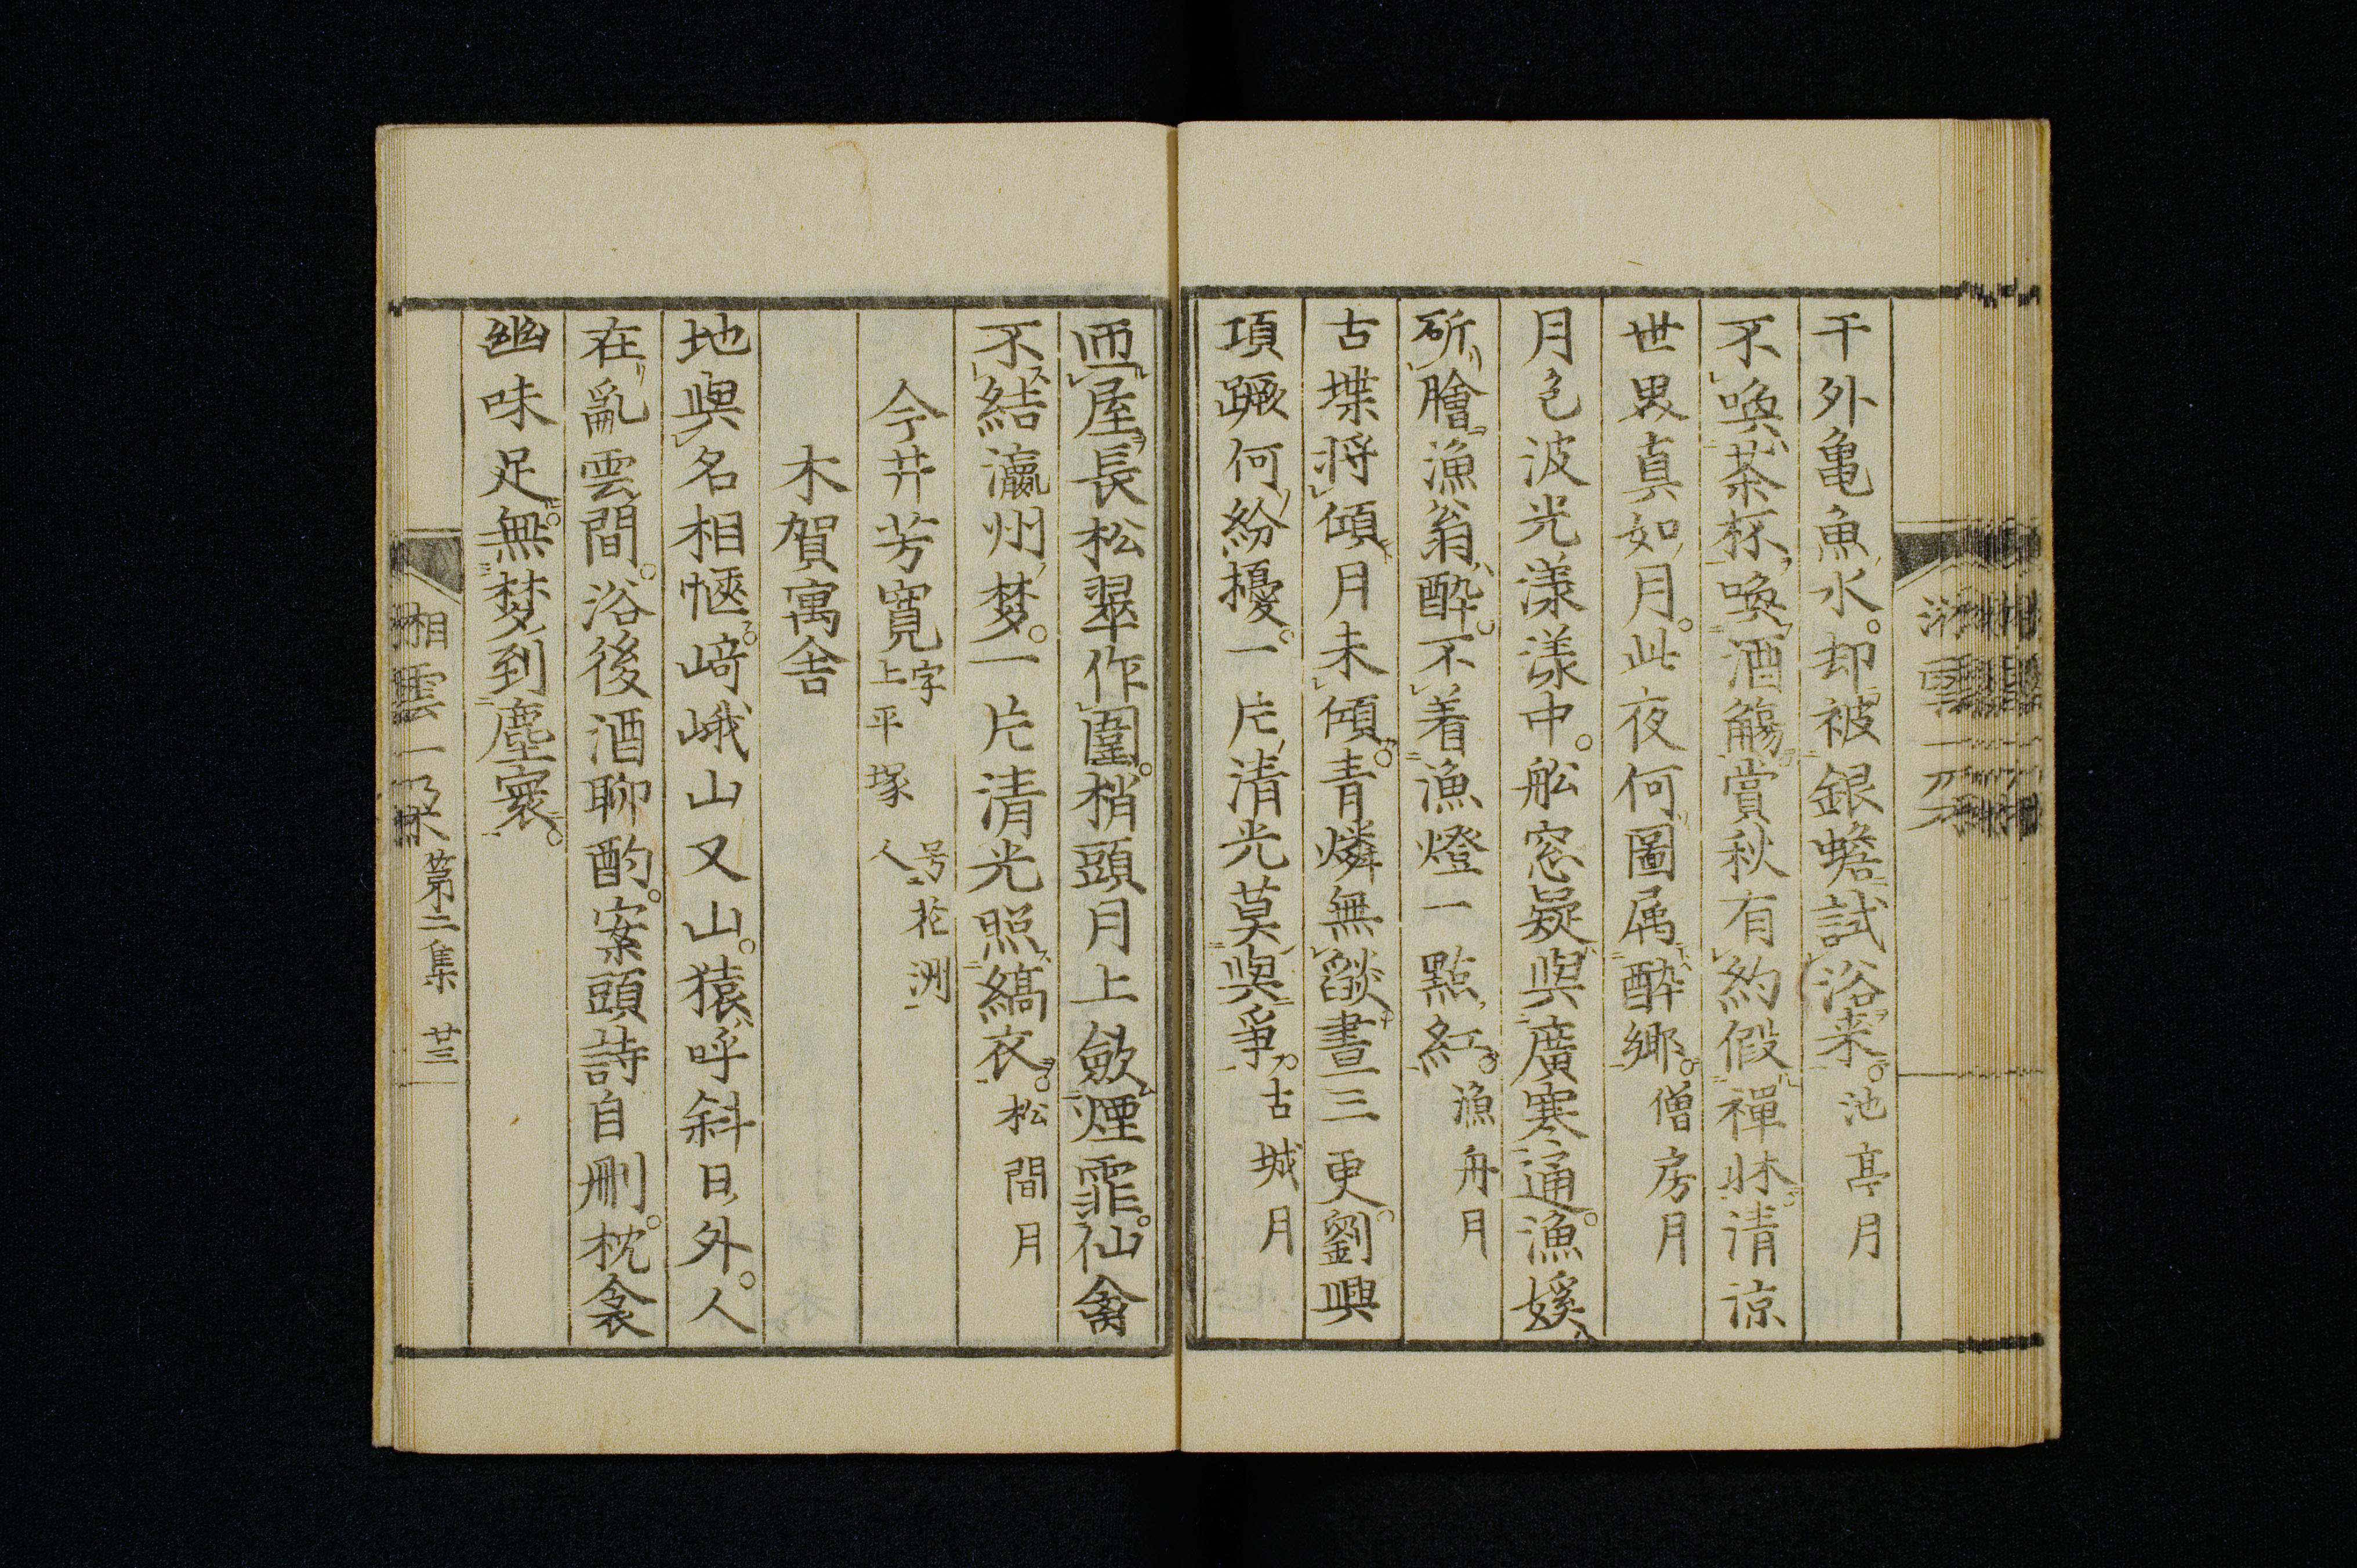 干外亀魚水。却被銀蟾試浴来。池亭月
不喚茶杯喚酒觴。賞秋有約假禪牀。清涼
世界真如月。此夜何圖属醉郷。僧房月
月色波光漾漾中。舩窓疑與廣寒通。漁媛
斫膾漁翁酔。不着漁燈一點紅。漁舟月
古堞将傾月未傾。青燐無燄晝三更。劉興
項蹶何紛擾。一片清光莫與爭。古城月
匝屋長松翠作圍。梢頭月上斂煙霏。仙禽
不結瀛州夢。一片清光照縞衣。松間月
今井芳寛字号花洲
上平塚人
木賀寓舎
地與名相愜。﨑峨山又山。猿呼斜日外。人
在亂雲間。浴後酒聊酌。案頭詩自刪。枕衾
幽味足。無夢到塵寰。
湘雲一朶 第二集 廿三